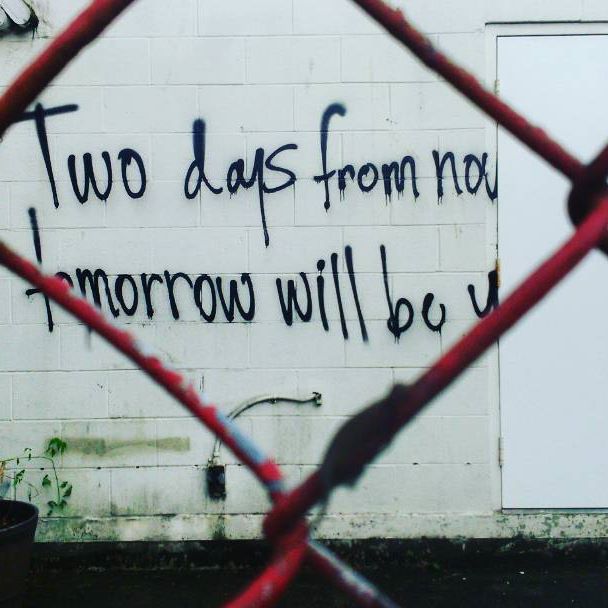 Two days from now
tomorrow will be